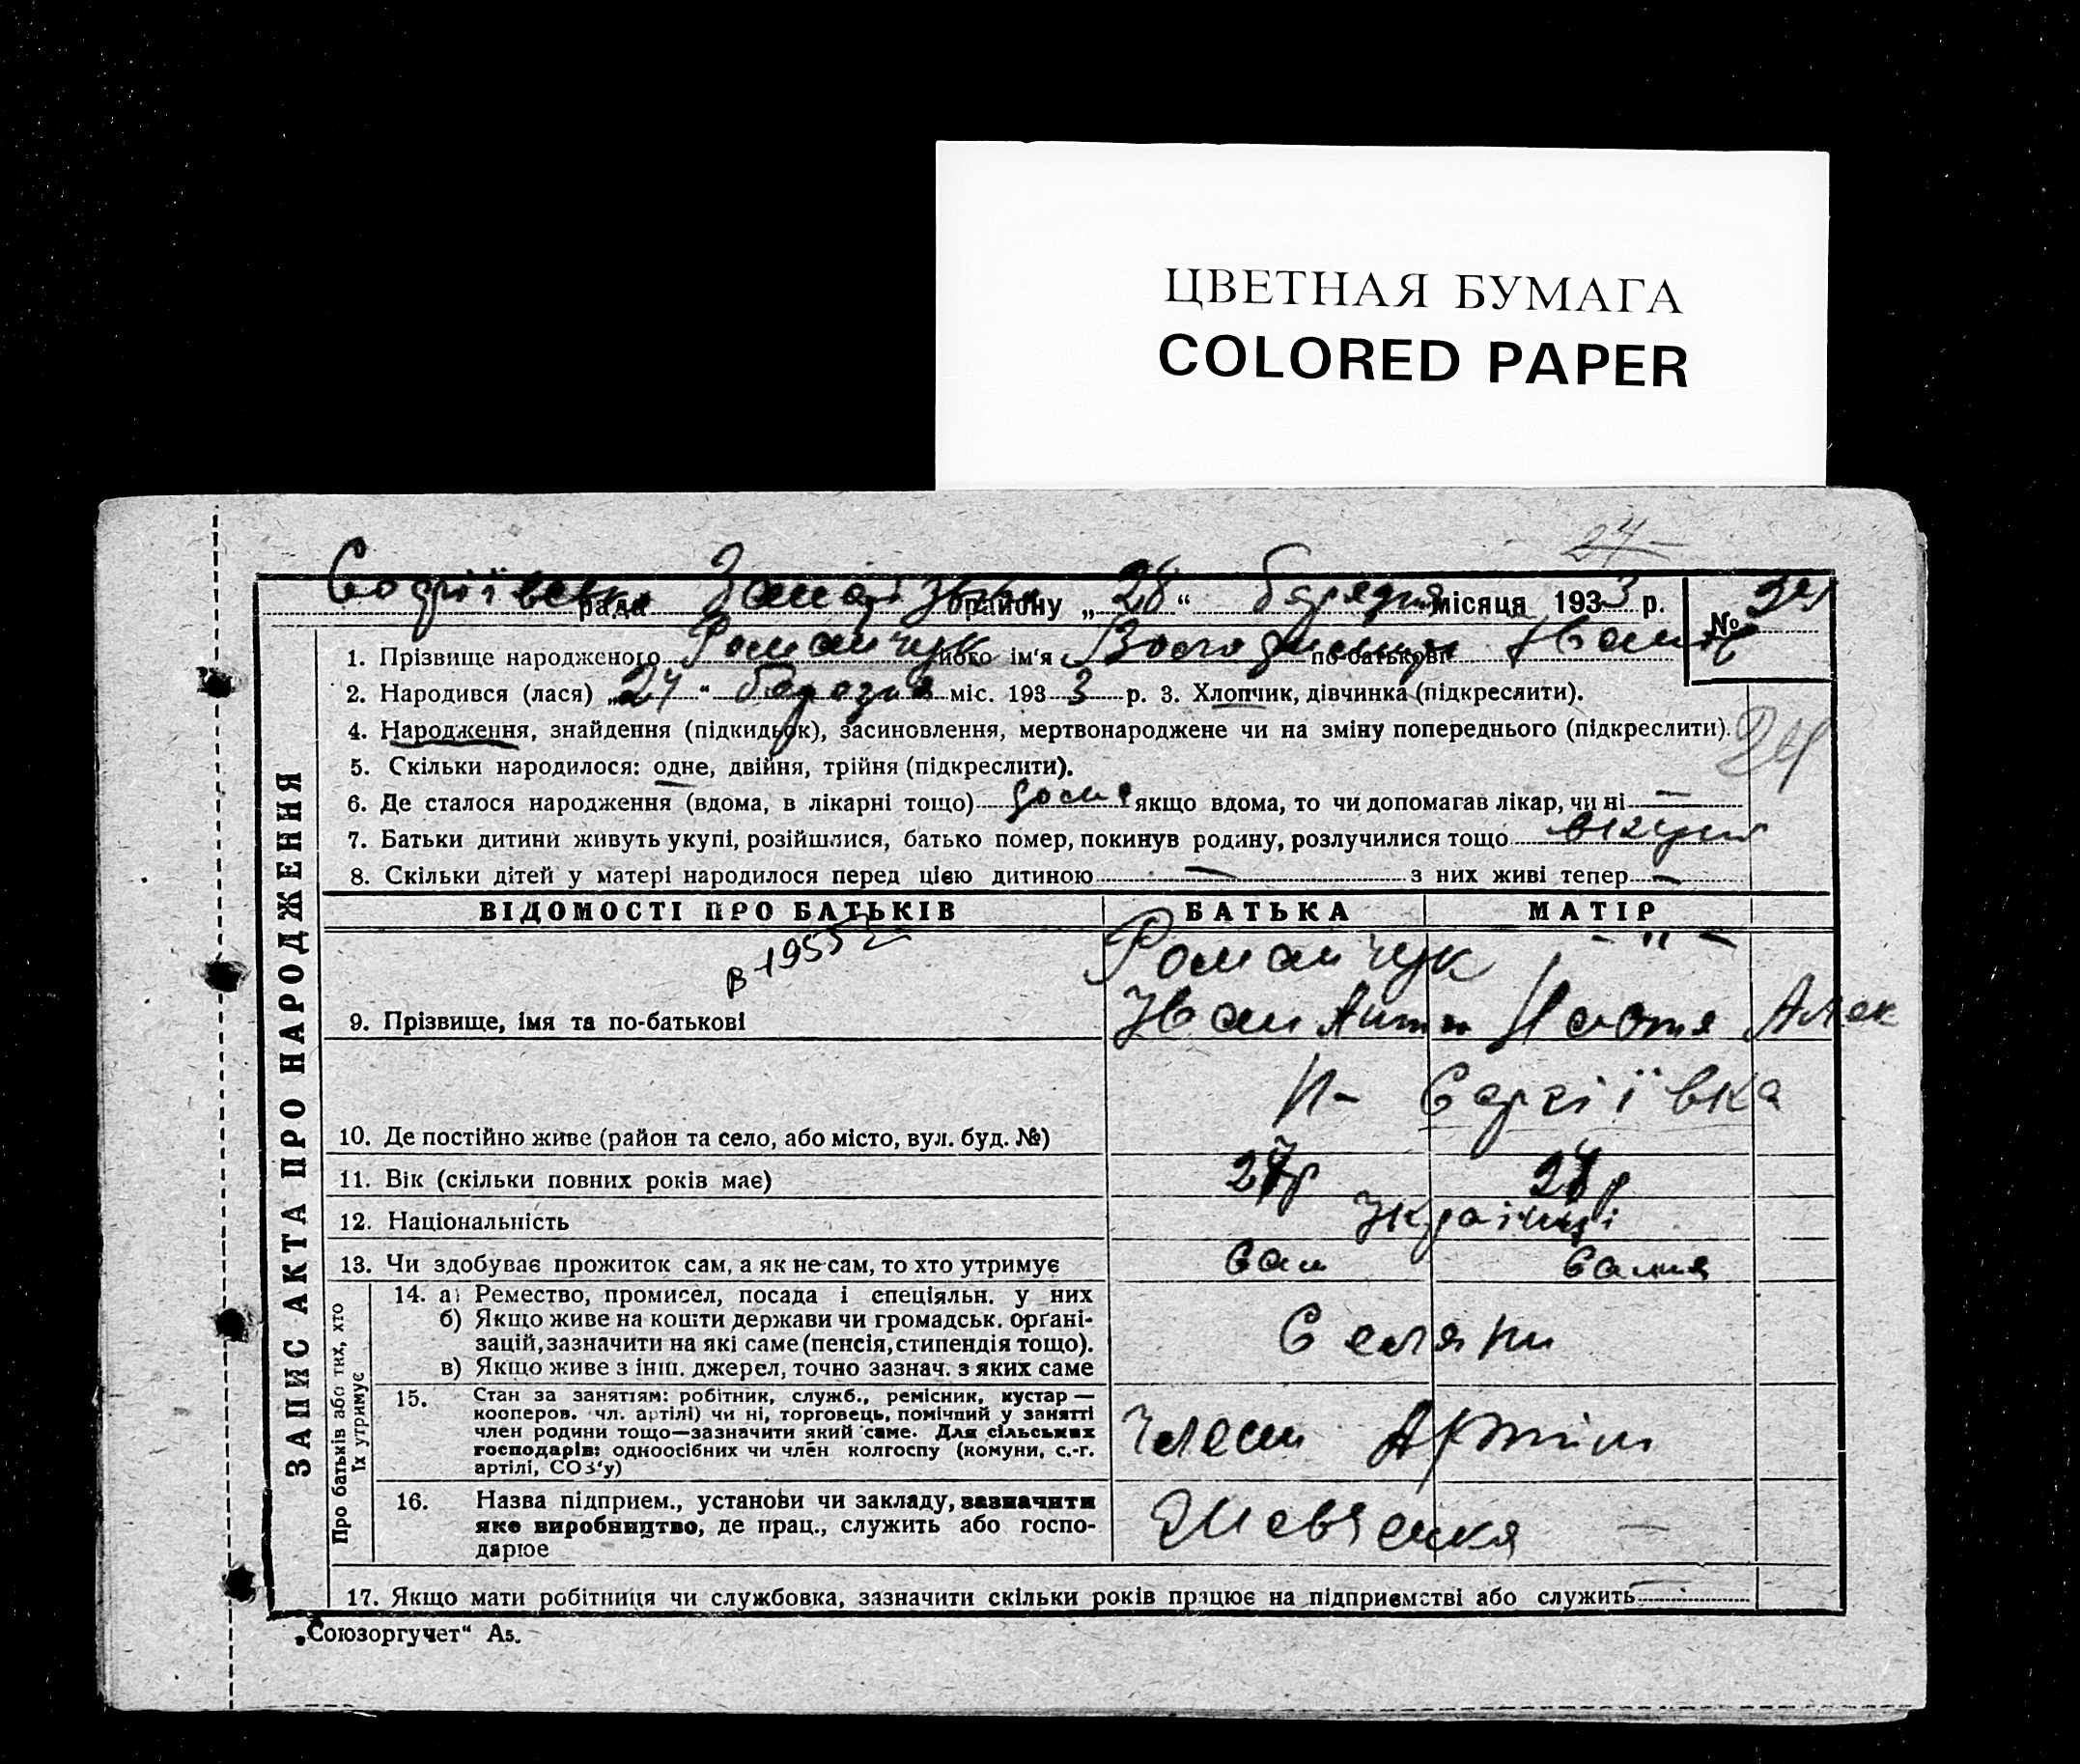 ЦВЕТНАЯ БУМАГА
COLORED PAPER
24
рада району „28“ березня місяця 1933 р. №
1. Прізвище народженого Романчук його ім'я Володимир по-батькові Іван
2. Народився (лася) „24“ березня міс. 1933 р. 3. Хлопчик, дівчинка (підкреслити).
4. Народження, знайдення (підкидьок), засиновлення, мертвонароджене чи на зміну попереднього (підкреслити). 24
5. Скільки народилося: одне, двійня, трійня (підкреслити).
6. Де сталося народження (вдома, в лікарні тощо) дома якщо вдома, то чи допомагав лікар, чи ні —
7. Батьки дитини живуть укупі, розійшлися, батько помер, покинув родину, розлучилися тощо вкупи
8. Скільки дітей у матері народилося перед цією дитиною — з них живі тепер —
ЗАПИС АКТА ПРО НАРОДЖЕННЯ
ВІДОМОСТІ ПРО БАТЬКІВ БАТЬКА МАТІР
Романчук - " -
9. Прізвище, імя та по-батькові Іван Антон Настя Алек
Н- Сергіївка
10. Де постійно живе (район та село, або місто, вул. буд. №)
11. Вік (скільки повних років має)
12. Національність Українці
13. Чи здобуває прожиток сам, а як не сам, то хто утримує Сам Сама
Про батьків або тих, хто їх утримує
14. а) Ремество, промисел, посада і спеціяльн. у них
б) Якщо живе на кошти держави чи громадськ. орґані-
зацій, зазначити на які саме (пенсія, стипендія тощо). Селяни
в) Якщо живе з інш. джерел, точно зазнач. з яких саме
15. Стан за заняттям: робітник, служб., ремісник, кустар —
кооперов. чл. артілі) чи ні, торговець, помічний у занятті
член родини тощо—зазначити який саме. Для сільських Член Артіли
господарів: одноосібних чи член колгоспу (комуни, с.-г.
артілі, СОЗ'у)
16. Назва підприєм., установи чи закладу, зазначити
яке виробництво, де прац., служить або госпо- Шевченка —
дарює
17. Якщо мати робітниця чи службовка, зазначити скільки років працює на підприємстві або служить —
„Союзоргучет“ А5.